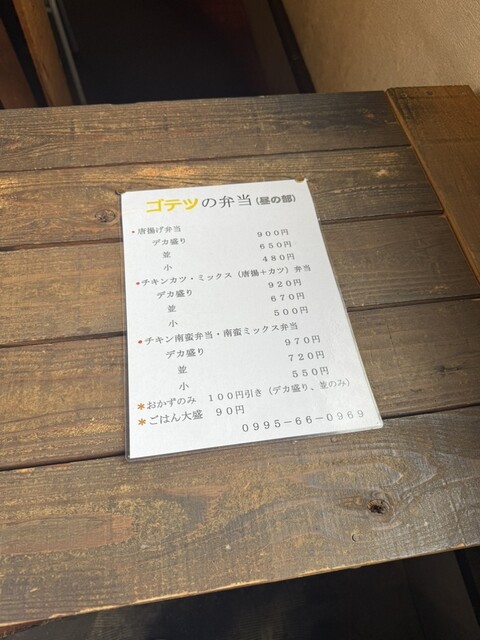 ゴテツの弁当(昼の部)
・唐揚げ弁当
デカ盛り 900円
並 650円
小 480円
・チキンカツ・ミックス(唐揚+カツ)弁当
デカ盛り 920円
並 670円
小 500円
・チキン南蛮弁当・南蛮ミックス弁当
デカ盛り 970円
並 720円
小 550円
*おかずのみ 100円引き(デカ盛り、並のみ)
*ごはん大盛 90円
0995-66-0969